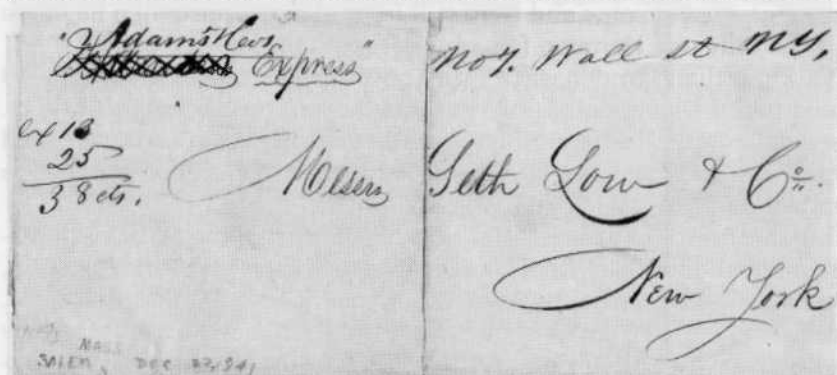 "Adams News
Express"
No 7. Wall St NY,
ex 13
25
38 cts.
Messrs Seth Low & Co.
New York
MASS
SALEM, DEC 22, 1841